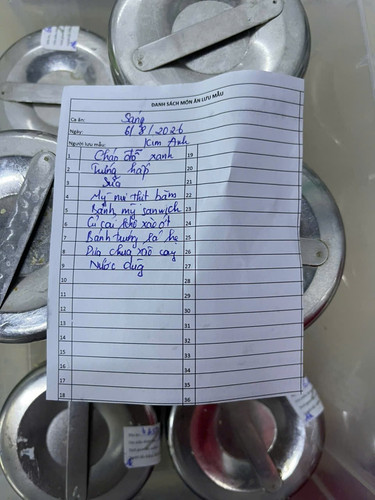 DANH SÁCH MÓN ĂN LƯU MẪU
Ca ăn: Sáng
Ngày: 6/8/2026
Người lưu mẫu: Kim Anh
1 Cháo đỗ xanh 19
2 Trứng hấp 20
3 Sữa 21
4 Mỳ nui thịt bằm 22
5 Bánh mỳ sanwich 23
6 Củ cải khô xào ớt 24
7 Bánh tráng lá hẹ 25
8 Dưa chua xào cay 26
9 Nước 27
10 28
11 29
12 30
13 31
14 32
15 33
16 34
17 35
18 36